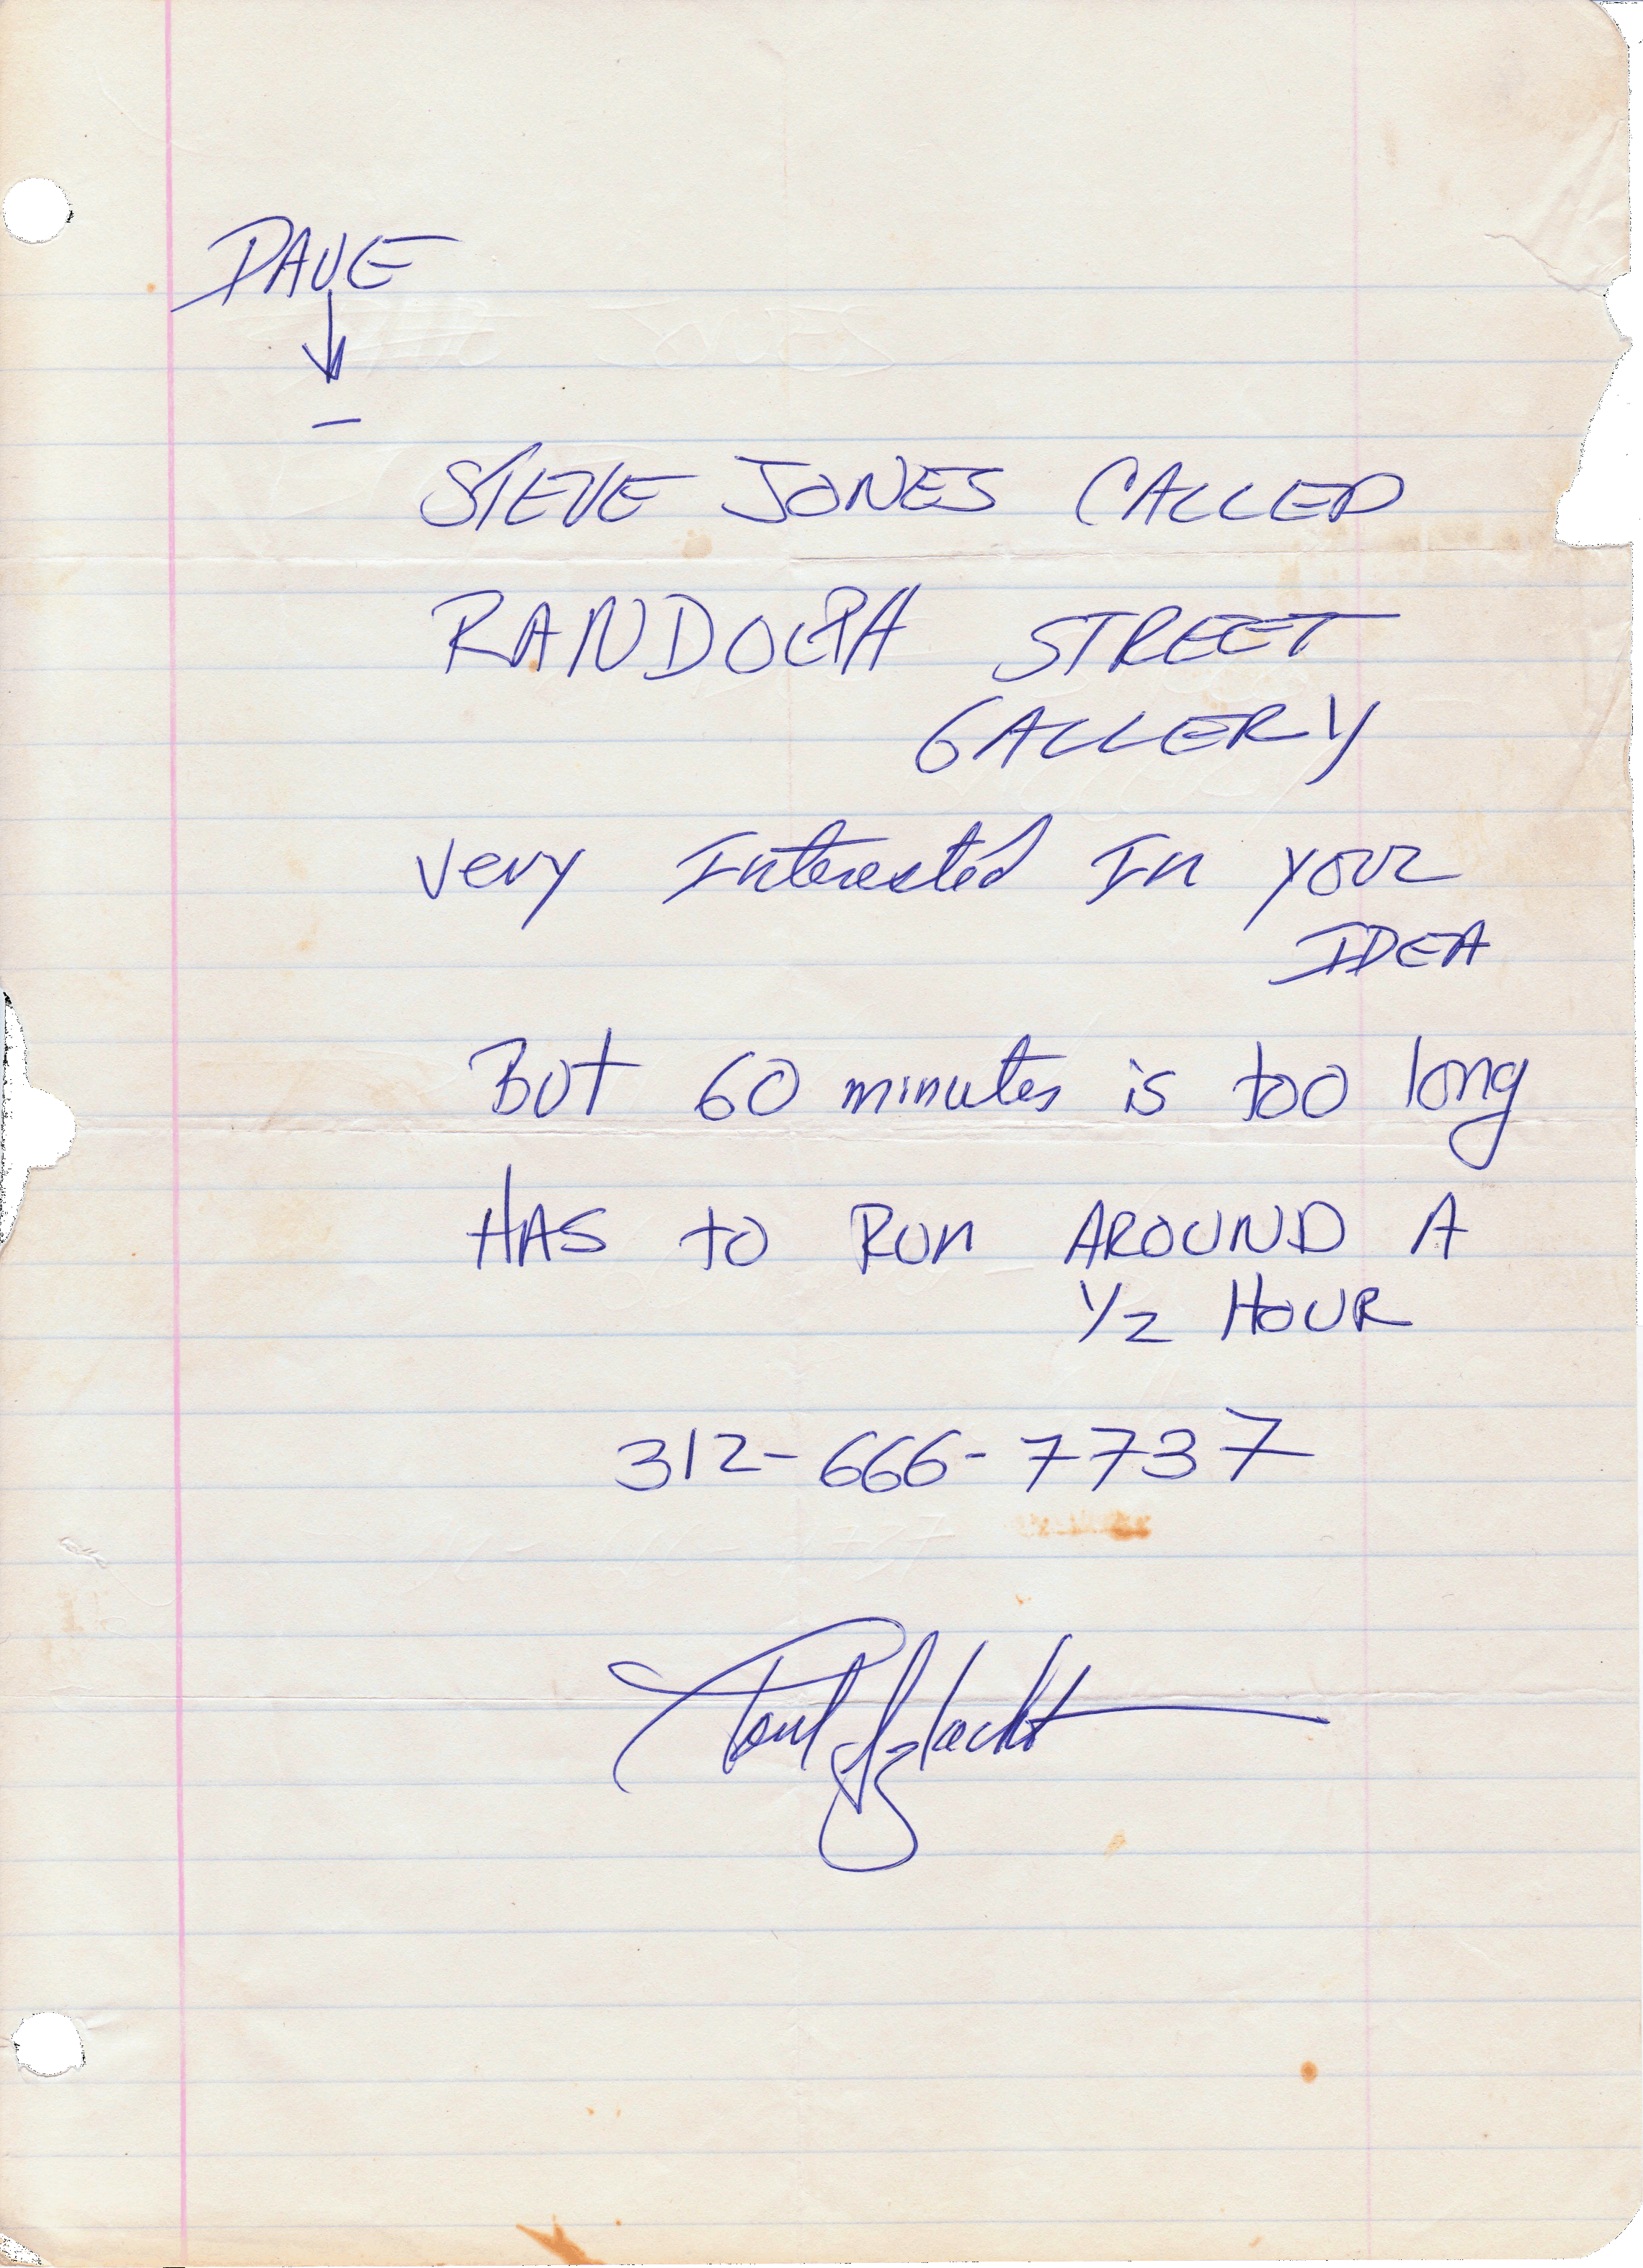 DAVE
STEVE JONES CALLED
RANDOLPH STREET
GALLERY
very Interested In your
IDEA
But 60 minutes is too long
HAS to Run AROUND A
1/2 HOUR
312-666-7737
Paul